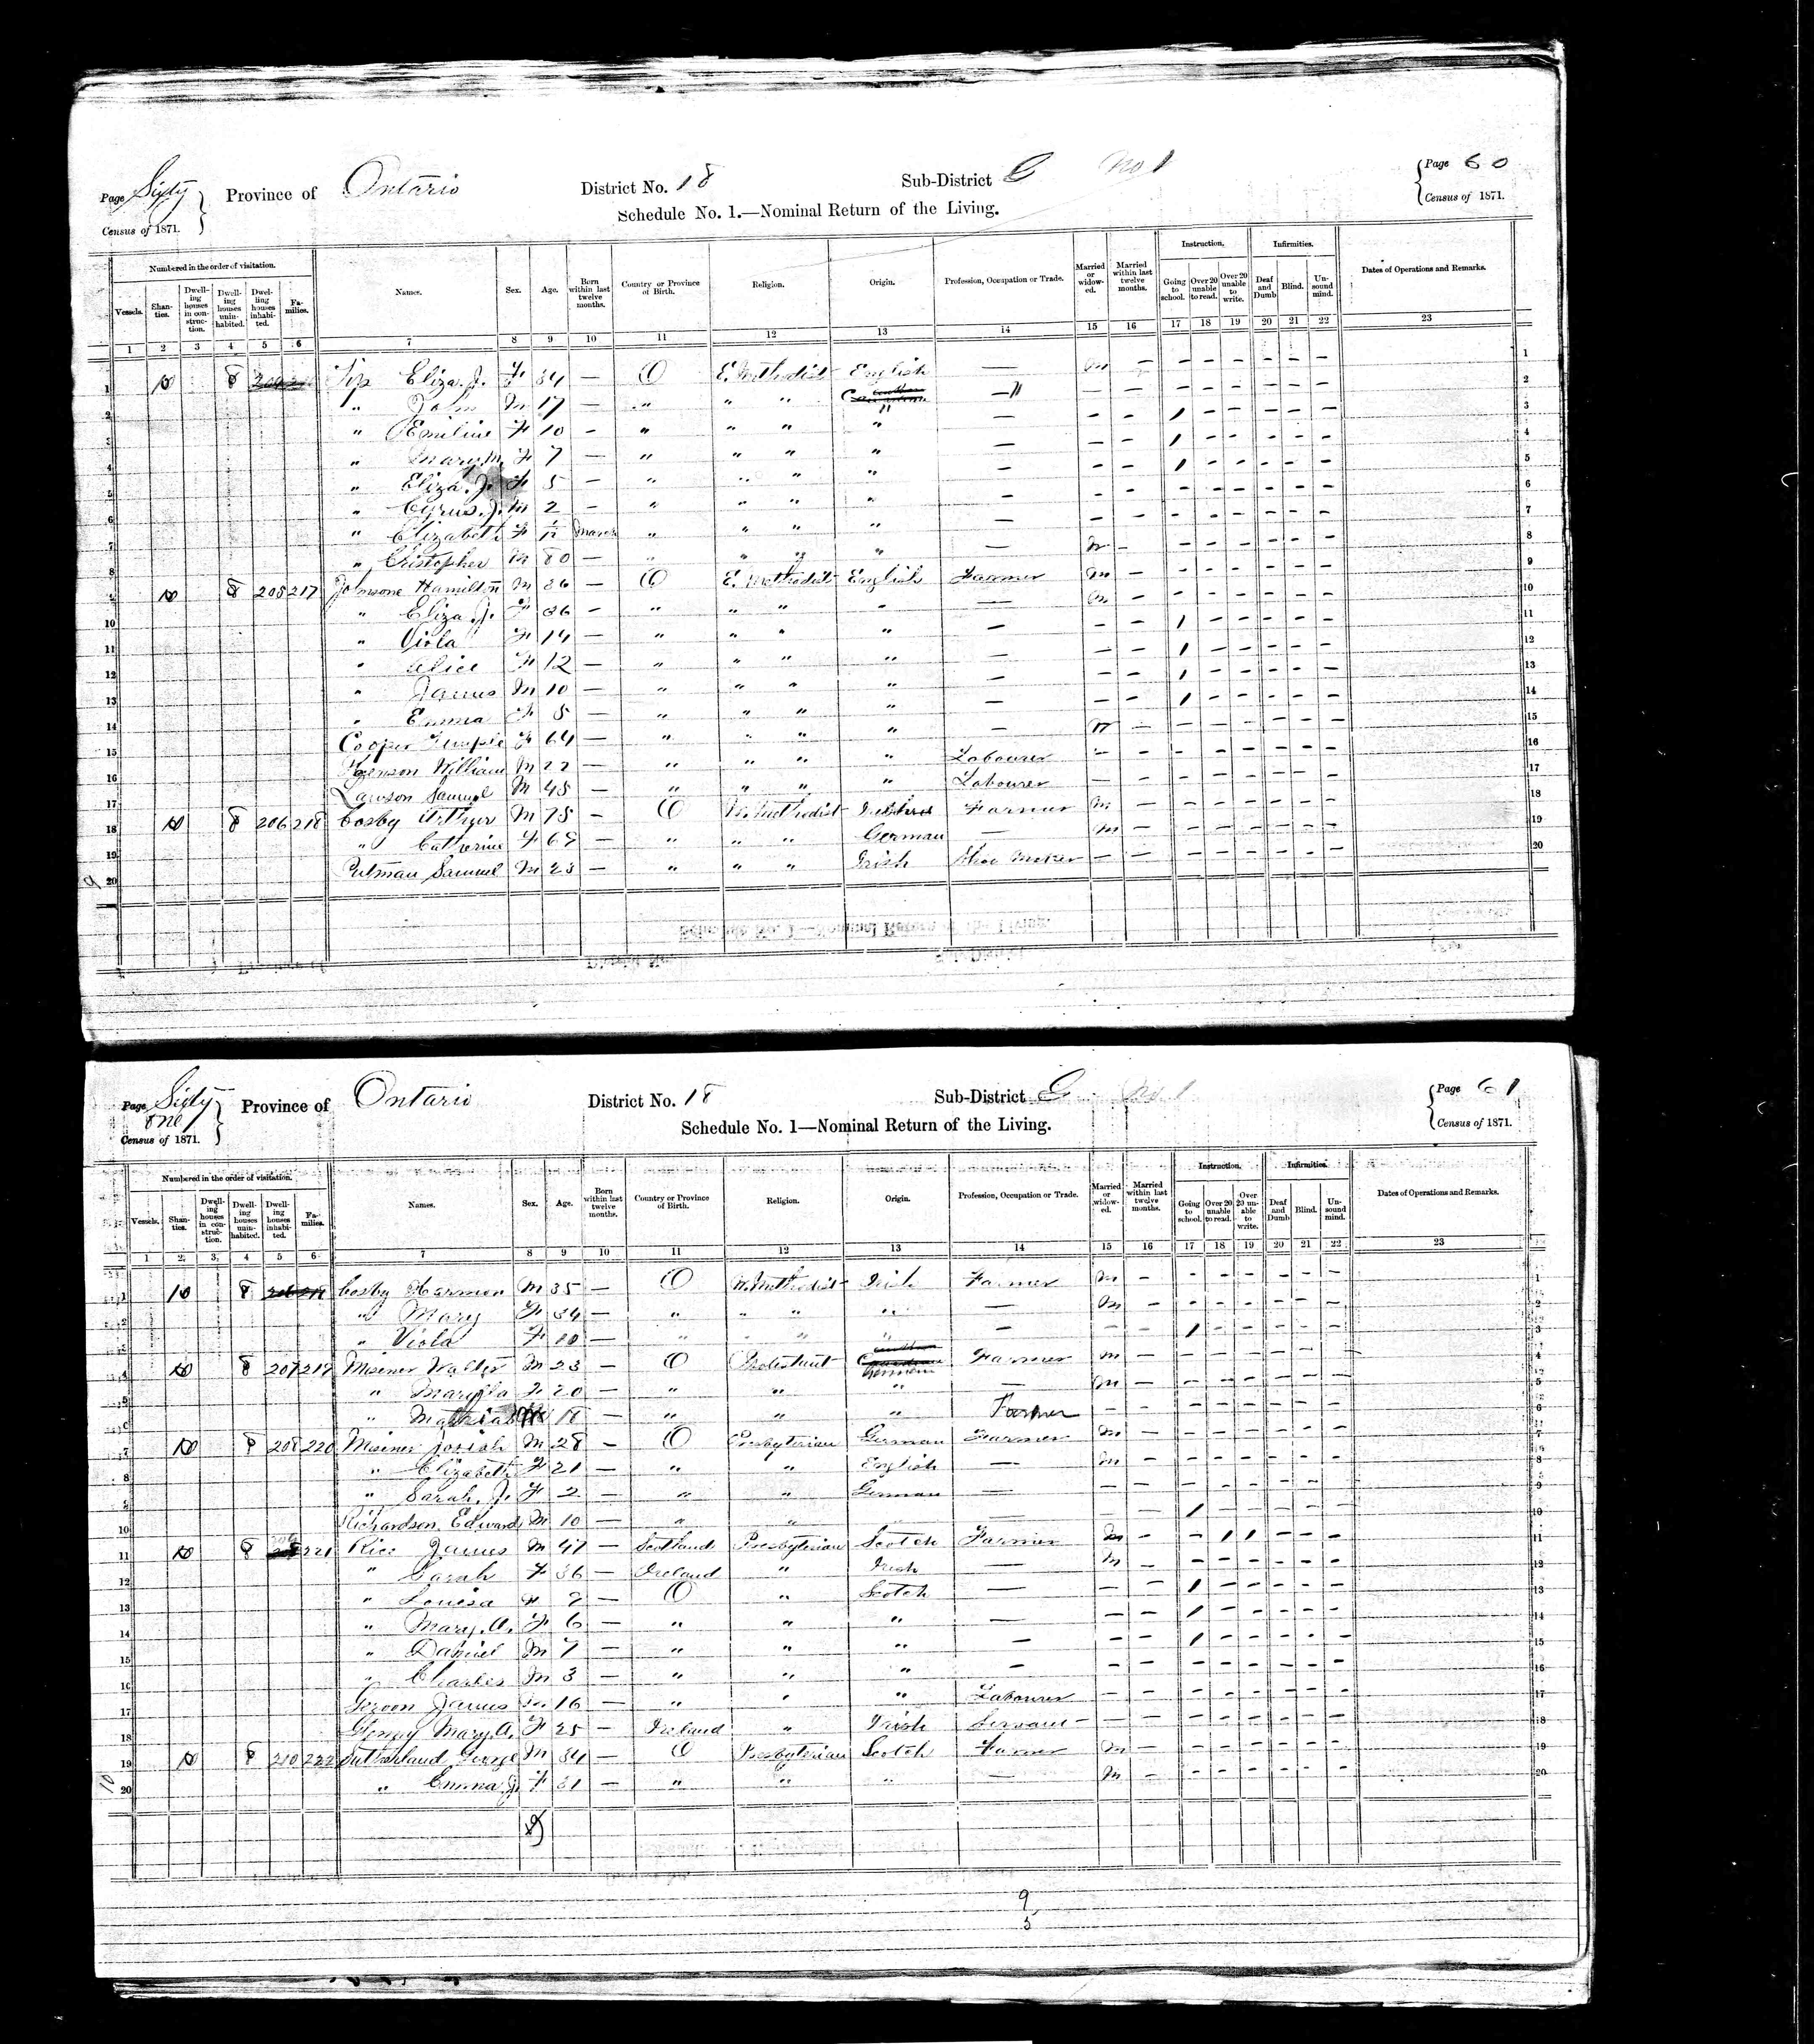 Page Sixty Province of Ontario District No. 18 Sub-District G No 1 Page 60
Census of 1871. Schedule No. 1.—Nominal Return of the Living. Census of 1871.
Numbered in the order of visitation. Instruction. Infirmities.
Vessels. Shanties. Dwelling houses in construction. Dwelling uninhabited. Dwelling houses inhabited. Families. Names. Sex. Age. Born within last twelve months. Country or Province of Birth. Religion. Origin. Profession, Occupation or Trade. Married or widowed. Married within last twelve months. Going to school. Over 20 unable to read. Over 20 unable to write. Deaf and Dumb Blind. Unsound mind. Dates of Operations and Remarks.
1 2 3 4 5 6 7 8 9 10 11 12 13 14 15 16 17 18 19 20 21 22 23
1 Eliza. J. F 34 — O E. Methodist English — M — - - - - - - 1
2 " John M 17 — " " " " — - - - - - - 2
3 " Emiline F 10 - " " " " — - - 1 - - - - - 3
4 " Mary M. F 7 — " " " " — - - 1 - - - - - 4
5 " Eliza. J. F 5 — " " " " — - - 1 - - - - - 5
6 " Cyrus. J. M 2 - " " " " — - - - - - - - - 6
7 " Elizabeth F March " " " " — - - - - - - - - 7
8 " Cristopher M 80 — " " " " — - - - - - - - 8
9 8 205 217 Johnsone Hamilton M 36 — O E. Methodist English Farmer M — - - - - - - 9
10 " Eliza. J. F 36 - " " " " — M - - - - - - - 10
11 " Viola F 14 — " " " " — - - 1 - - - - - 11
12 " Alice F 12 — " " " " — - - 1 - - - - - 12
13 " James M 10 — " " " " — - - 1 - - - - - 13
14 " Emma F 8 — " " " " — - - 1 - - - - - 14
15 Cooper F 64 — " " " " — — - - - - - - 15
16 William M 22 — " " " " Labourer - - - - - - - - 16
17 Lawson Samuel M 45 — " " " " Labourer — - - - - - - - 17
18 8 206 218 Cosby M 75 - O W. Methodist Farmer M — - - - - - - 18
19 " Catherine F — " " " German — M — - - - - - - 19
20 Samuel M 23 — " " " Irish Shoe Maker — — - - - - - - 20
Page Sixty one Province of Ontario District No. 18 Sub-District G No 1 Page 61
Census of 1871. Schedule No. 1—Nominal Return of the Living. Census of 1871.
Numbered in the order of visitation. Instruction. Infirmities.
Vessels. Shanties. Dwelling houses in construction. Dwelling uninhabited. Dwelling houses inhabited. Families. Names. Sex. Age. Born within last twelve months. Country or Province of Birth. Religion. Origin. Profession, Occupation or Trade. Married or widowed. Married within last twelve months. Going to school. Over 20 unable to read. Over 20 unable to write. Deaf and Dumb Blind. Unsound mind. Dates of Operations and Remarks.
1 2 3 4 5 6 7 8 9 10 11 12 13 14 15 16 17 18 19 20 21 22 23
1 10 8 Cosby Harmon M 35 — O W. Methodist Irish Farmer M — - - - - - - 1
2 " Mary F 34 — " " " " — M - - - - - - - 2
3 " Viola F 10 — " " " " — - - 1 - - - - - 3
4 8 207 219 Misener Walter M 23 — O Protestant German Farmer M - - - - - - - 4
5 " F 20 — " " " — M - - - - - - - 5
6 " 18 — " " " Farmer - - - - - - - - 6
7 8 208 220 Misener Josiah M 28 - O Presbyterian German Farmer M — - - - - - - 7
8 " Elizabeth F 21 — " " English — M - - - - - - - 8
9 " Sarah. J. F 2 — " " German — - - - - - - - - 9
10 Richardson Edward M 10 — " " " — - - 1 - - - - - 10
11 8 221 Rice James M 47 — Scotland Presbyterian Scotch Farmer M - - 1 1 - - - 11
12 " Sarah F 36 — Ireland " Irish — M - - - - - - - 12
13 " Louisa F — O " Scotch — - - 1 - - - - - 13
14 " Mary. A. F 6 — " " " — - - 1 - - - - - 14
15 " Daniel M 7 — " " " — - - 1 - - - - - 15
16 " Charles M 3 — " " " — - - - - - - - - 16
17 James 16 — " " " Labourer - - - - - - - - 17
18 Mary A. F 25 — Ireland " Irish Servant - - - - - - - - 18
19 8 210 222 Sutherland George M 34 — O Presbyterian Scotch Farmer M - - - - - - - 19
20 " Emma J. F 31 — " " " — M - - - - - - - 20
9
5